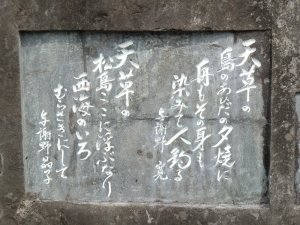 天草の
島のあひだの夕焼に
舟もその身も
染みて人釣る
与謝野 寛
天草の
松島ここに浮ぶなり
西海のいろ
むらさきにして
与謝野晶子